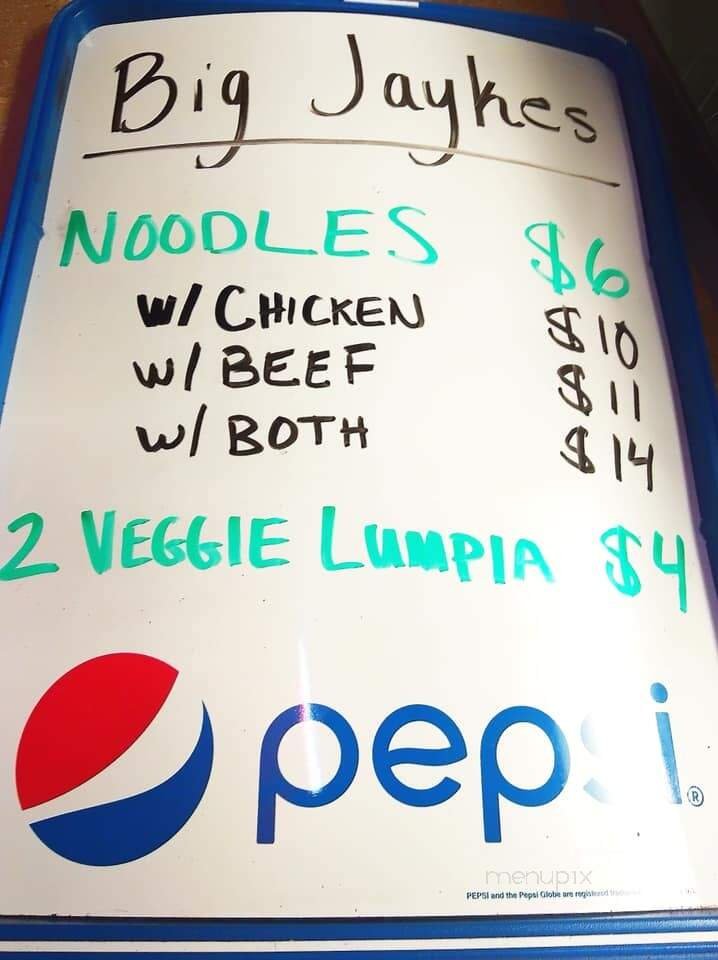 Big Jaykes
NOODLES $6
W/ CHICKEN $10
W/ BEEF $11
W/ BOTH $14
2 VEGGIE LUMPIA $4
pepsi®
menupix
PEPSI and the Pepsi Globe are registered